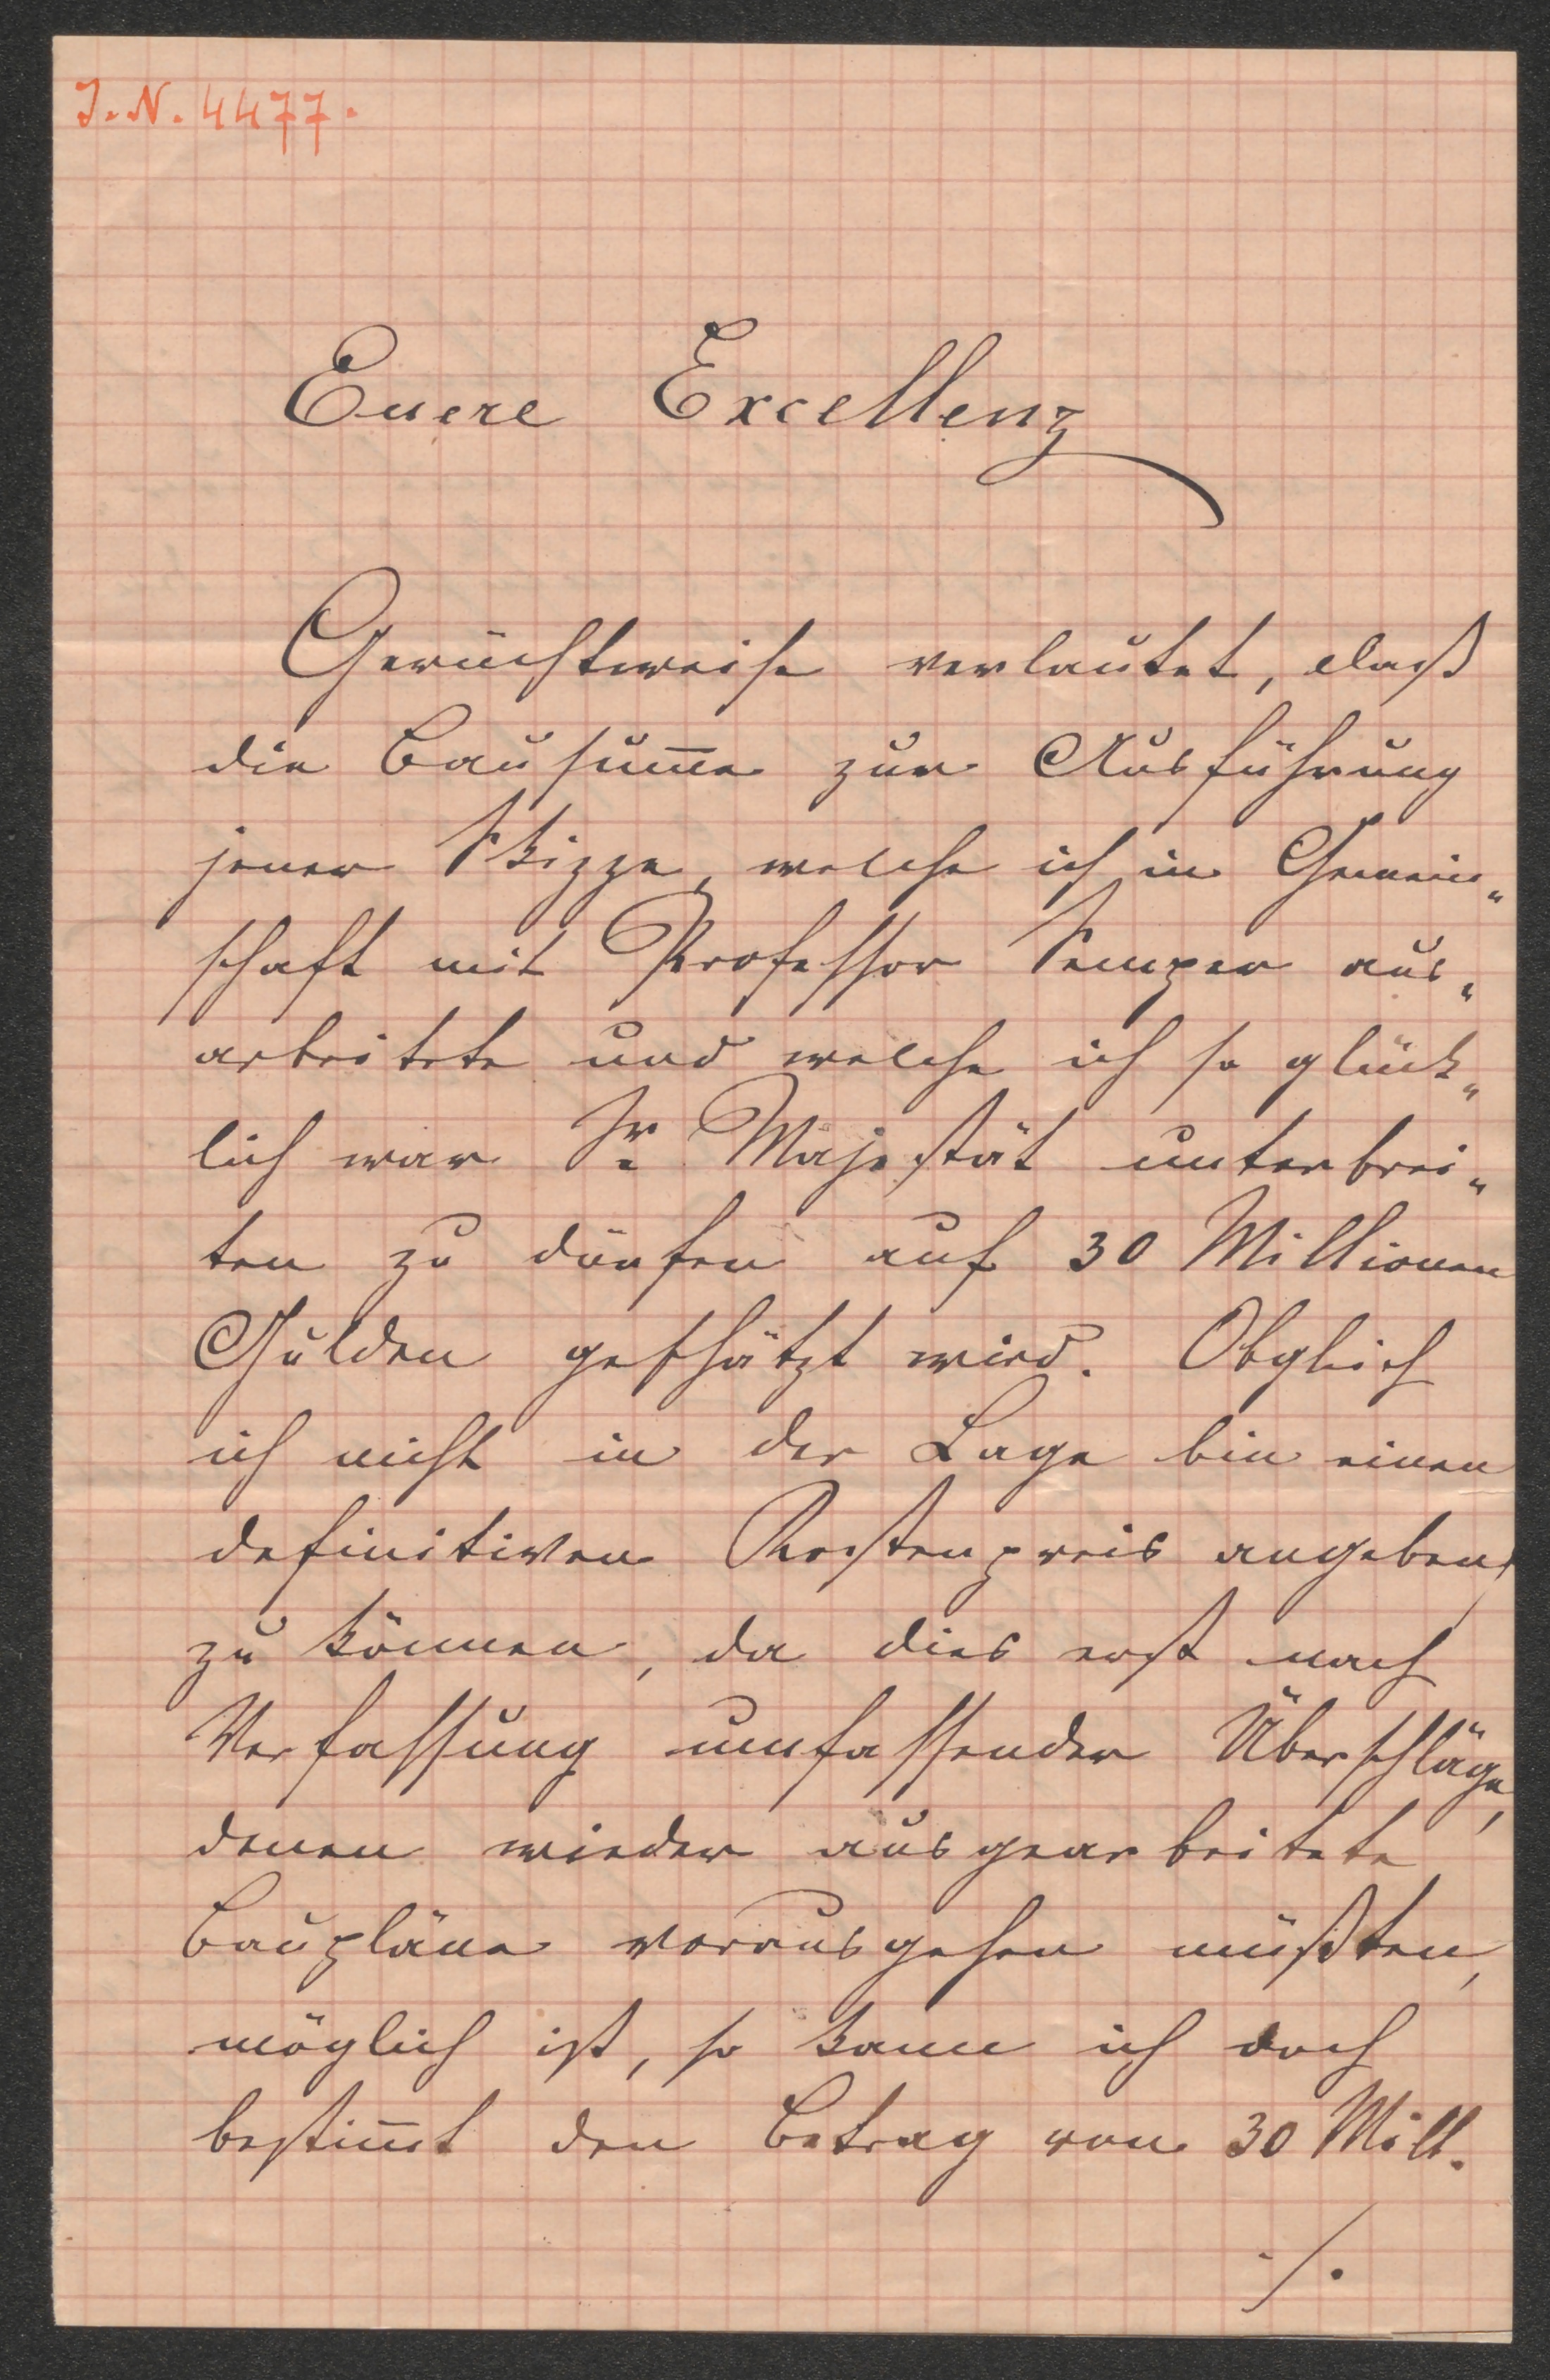 J. N. 4477.
Euere Excellenz
Gerüchtweise verlautet, daß
die Bausum̅e zur Ausführung
jener Skizze, welche ich in Gemein„
schaft mit Professor Semper aus„
arbeitete und welche ich so glück„
lich war Sr Majestät unterbrei„
ten zu dürfen auf 30 Millionen
Gulden geschätzt wird. Obgleich
ich nicht in der Lage bin einen
definitiven Kostenpreis angeben
zu können, da dies erst nach
Verfassung umfassender Überschläge,
denen wieder ausgearbeitete
Baupläne vorausgehen müßten,
möglich ist, so kann ich doch
bestim̅t den Betrag von 30 Mill.
./.